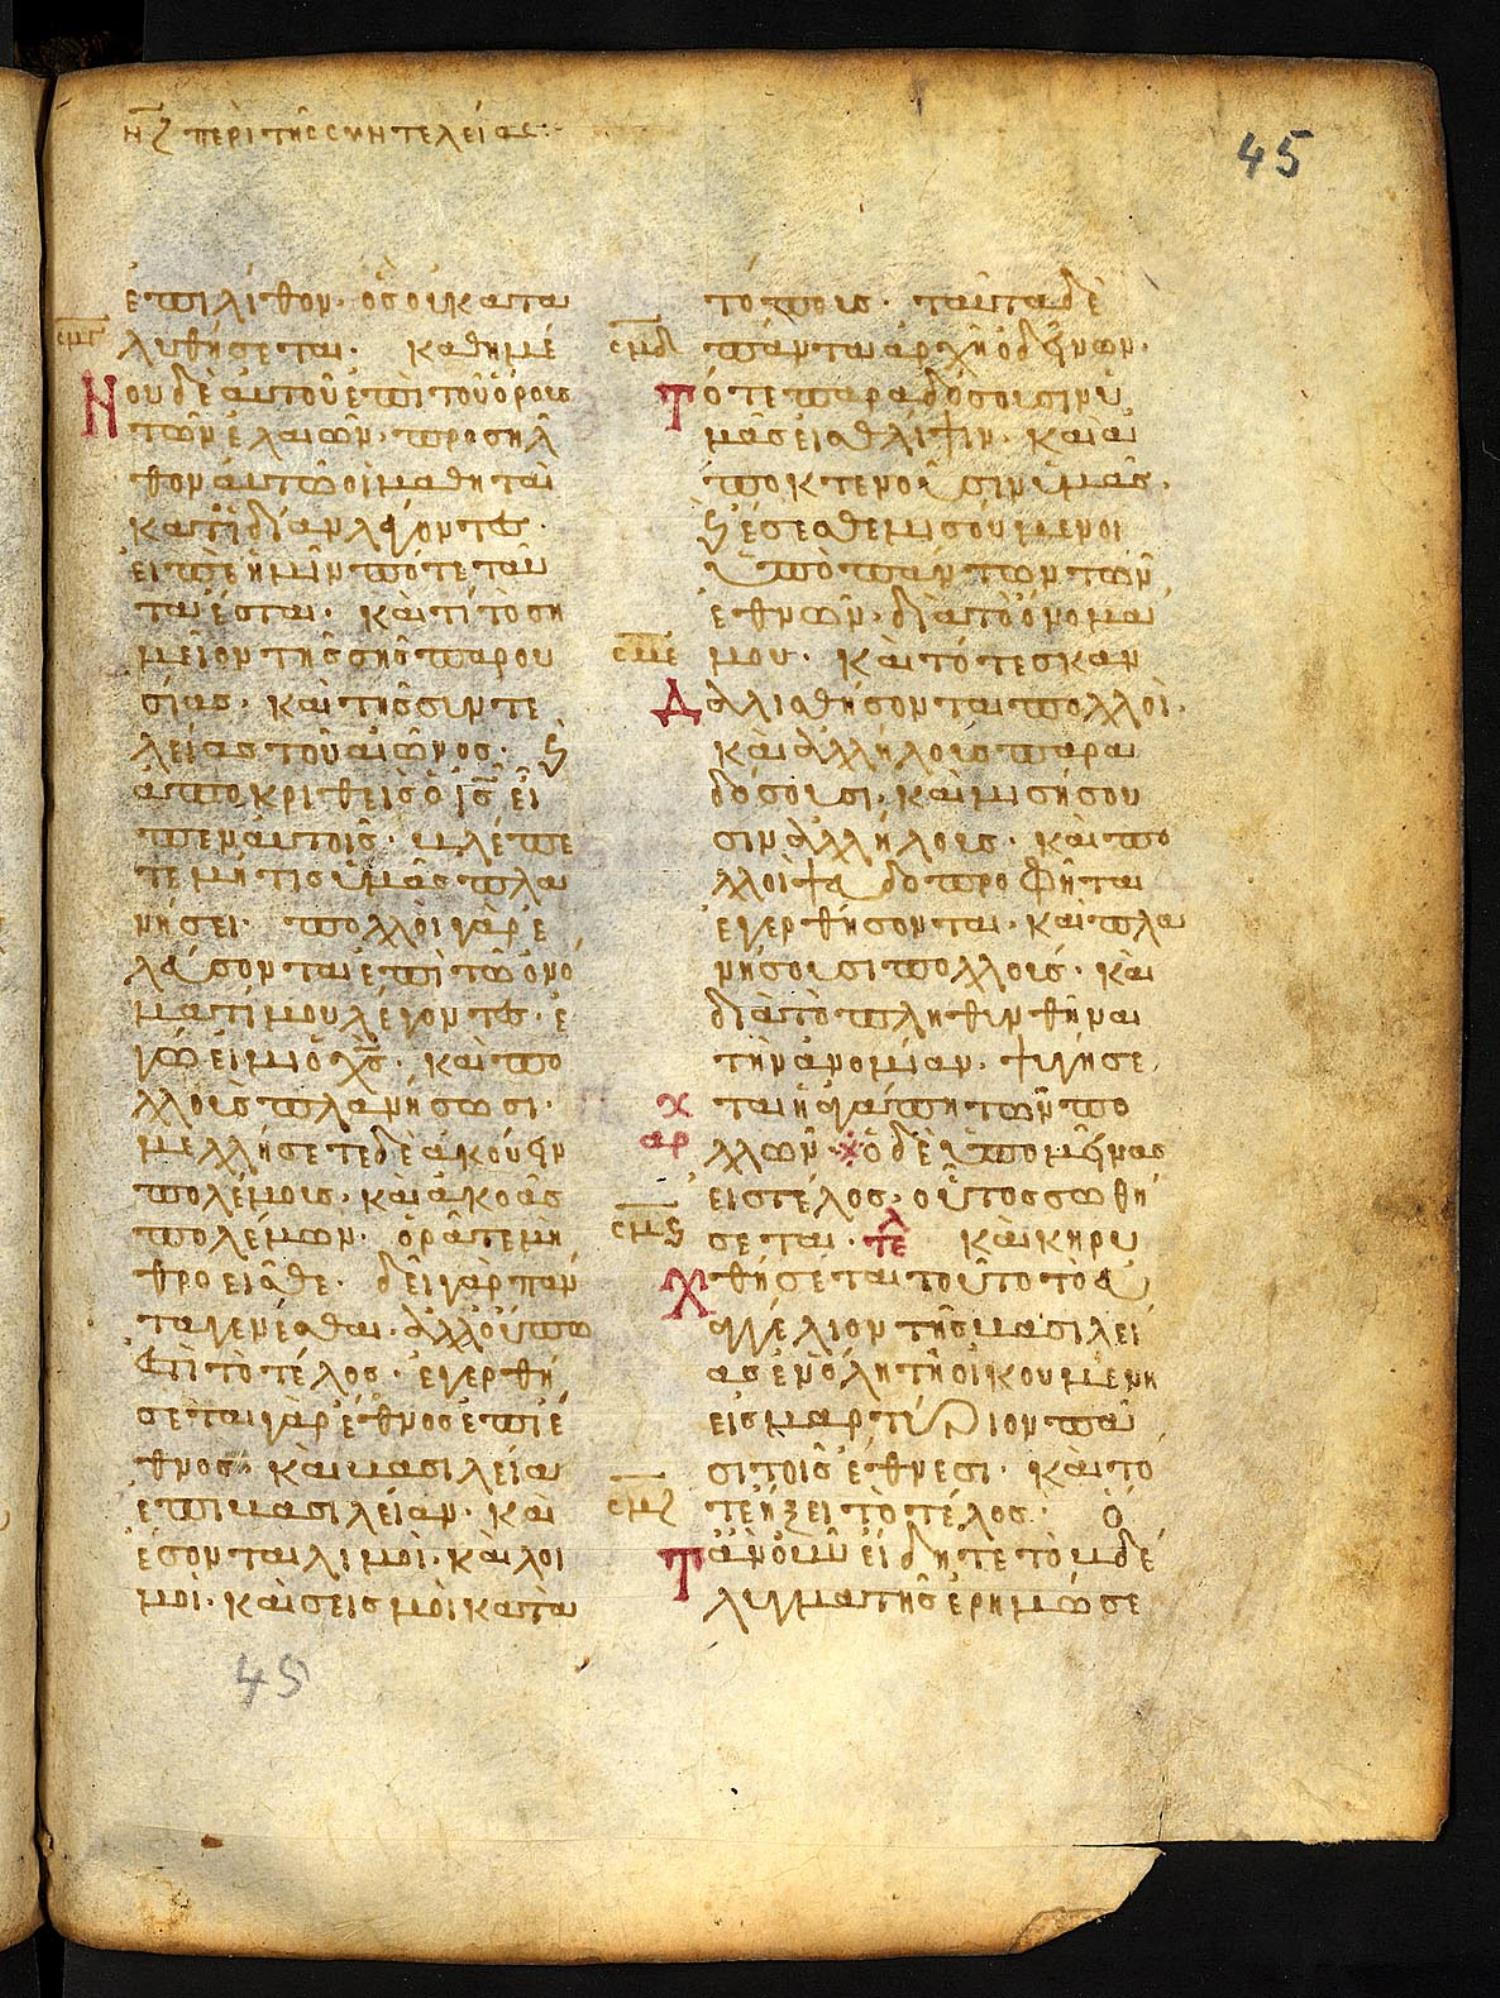 ν̅ζ περὶ τῆς συντελείας:-
45
ἐπι λίθον· ὃς οὐ κατα
λυθήσεται· καθημέ
σμγ
Νου δὲ αὐτοῦ ἐπὶ τοῦ ὄρους
τῶν ἐλαιῶν· προσῆλ
θον αὐτῶ οἱ μαθηταὶ
κατ' ἰδίαν λέγοντες·
εἰπὲ ἡμῖν πότε ταῦ
τα ἔσται· καὶ τί τὸ ση
μεῖον τῆς σῆς παρου
σίας· καὶ τῆς συντε
λείας τοῦ αἰῶνος· ϗ
ἀποκριθεὶς ὁ ι̅ς̅ εἶ
πεν αὐτοῖς· βλέπε
τε μή τις ὑμᾶς πλα
νήσει· πολλοὶ γὰρ ἐ
λεύσονται ἐπὶ τῶ ὀνό
ματί μου λέγοντες· ἐ
γώ εἰμι ὁ χ̅ς̅· καὶ πο
λλοὺς πλανήσωσι·
μελλήσετε δὲ ἀκούειν
πολέμους· καὶ ἀκοὰς
πολέμων· ὁρᾶτε μὴ
θροεῖσθε· δεῖ γὰρ πάν
τα γενέσθαι· ἀλλ' οὔπω
ἐστὶ τὸ τέλος· ἐγερθή
σεται γὰρ ἔθνος ἐπι ἔ
θνος· καὶ βασιλεία
ἐπι βασιλείαν· καὶ
ἔσονται λιμοὶ· καὶ λοι
μοὶ· καὶ σεισμοὶ κατὰ
τόπους· ταῦτα δὲ
σμδ πάντα ἀρχὴ ὀδίνων·
Τότε παραδόσουσιν ὑ
μᾶς εἰς θλίψιν· καὶ ἀ
ποκτενοῦσιν ὑμᾶς·
ϗ ἔσεσθε μισούμενοι
ὑπὸ πάντων τῶν
ἐθνῶν· διὰ τὸ ὄνομα
σμε μου· καὶ τότε σκαν
Δαλισθήσονται πολλοὶ·
καὶ ἀλλήλους παρα
δόσουσι· καὶ μισήσου
σιν ἀλλήλους· καὶ πο
λλοὶ ψευδοπροφῆται
ἐγερθήσονται· καὶ πλα
νήσουσι πολλούς· καὶ
διὰ τὸ πληθυνθῆναι
τὴν ἀνομίαν· ψυγήσε
ται ἡ ἀγάπη τῶν πο
αρ λλῶν· ὁ δὲ ὑπομείνας
εἰς τέλος· οὗτος σωθή
σμϛ σεται· τελ καὶ κηρυ
Χθήσεται τοῦτο τὸ εὐ
αγγέλιον τῆς βασιλεί
ας ἐν ὅλη τῆ οἰκουμένη
εἰς μαρτύριον πᾶ
σι τοῖς ἔθνεσι· καὶ τό
σμζ τε ἥξει τὸ τέλος· ὅ
Ταν οὖν εἴδητε τὸ βδέ
λυγμα τῆς ἐρημώσε
45